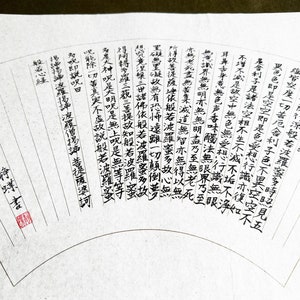 般若波羅蜜多時照見五
切苦厄舍利子色不異空空不
異色色即是空空即是色受想行識亦復如
是舍利子是諸法空相不生不滅不垢不淨
不增不減是故空中無色無受想行識無眼
耳鼻舌身意無色聲香味觸法無眼界乃至
無意識界無無明亦無無明盡乃至無老死
亦無老死盡無苦集滅道無智亦無得以無
所得故菩提薩埵依般若波羅蜜多故心無
罣礙無罣礙故無有恐怖遠離一切顛倒夢
想究竟涅槃三世諸佛依般若波羅蜜多故
得阿耨多羅三藐三菩提故知般若波羅蜜
多是大神呪是大明呪是無上呪是無等等
呪能除一切苦真實不虛故說般若波羅蜜
多呪即說呪曰
揭諦揭諦波羅揭諦波羅僧揭諦菩提薩婆訶
般若心經